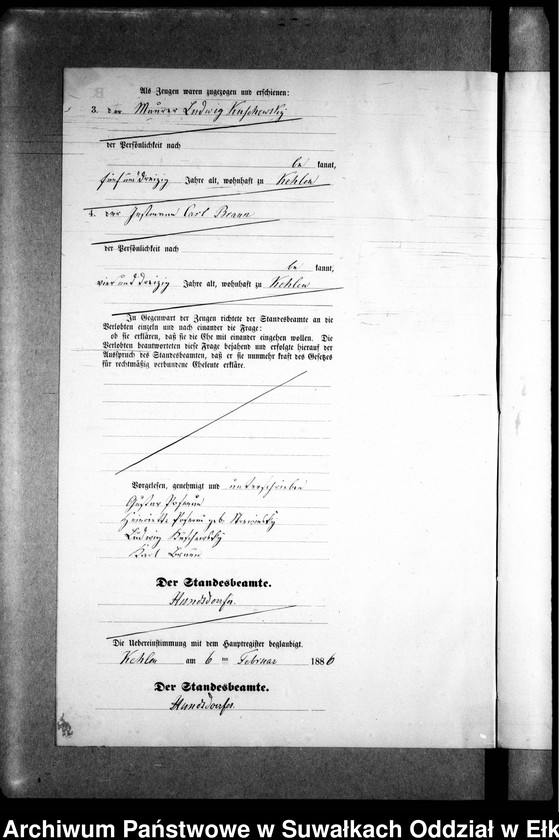 Als Zeugen waren zugezogen und erschienen:
3. der Maurer Ludwig Kuschewsky
der Persönlichkeit nach
be kannt,
fünf und dreizig Jahre alt, wohnhaft zu Kehlen
4. der Instmann Carl Braun
der Persönlichkeit nach
be kannt,
vier und dreizig Jahre alt, wohnhaft zu Kehlen
In Gegenwart der Zeugen richtete der Standesbeamte an die
Verlobten einzeln und nach einander die Frage:
ob sie erklären, daß sie die Ehe mit einander eingehen wollen. Die
Verlobten beantworteten diese Frage bejahend und erfolgte hierauf der
Ausspruch des Standesbeamten, daß er sie nunmehr kraft des Gesetzes
für rechtmäßig verbundene Eheleute erkläre.
Vorgelesen, genehmigt und unterschrieben
Gustav
Henriette geb.
Ludwig Kuschewsky
Karl Braun
Der Standesbeamte.
Hundsdorfer.
Die Uebereinstimmung mit dem Hauptregister beglaubigt.
Kehlen am 6ten Februar 1886
Der Standesbeamte.
Hundsdorfer.
Archiwum Państwowe w Suwałkach Oddział w Ełk